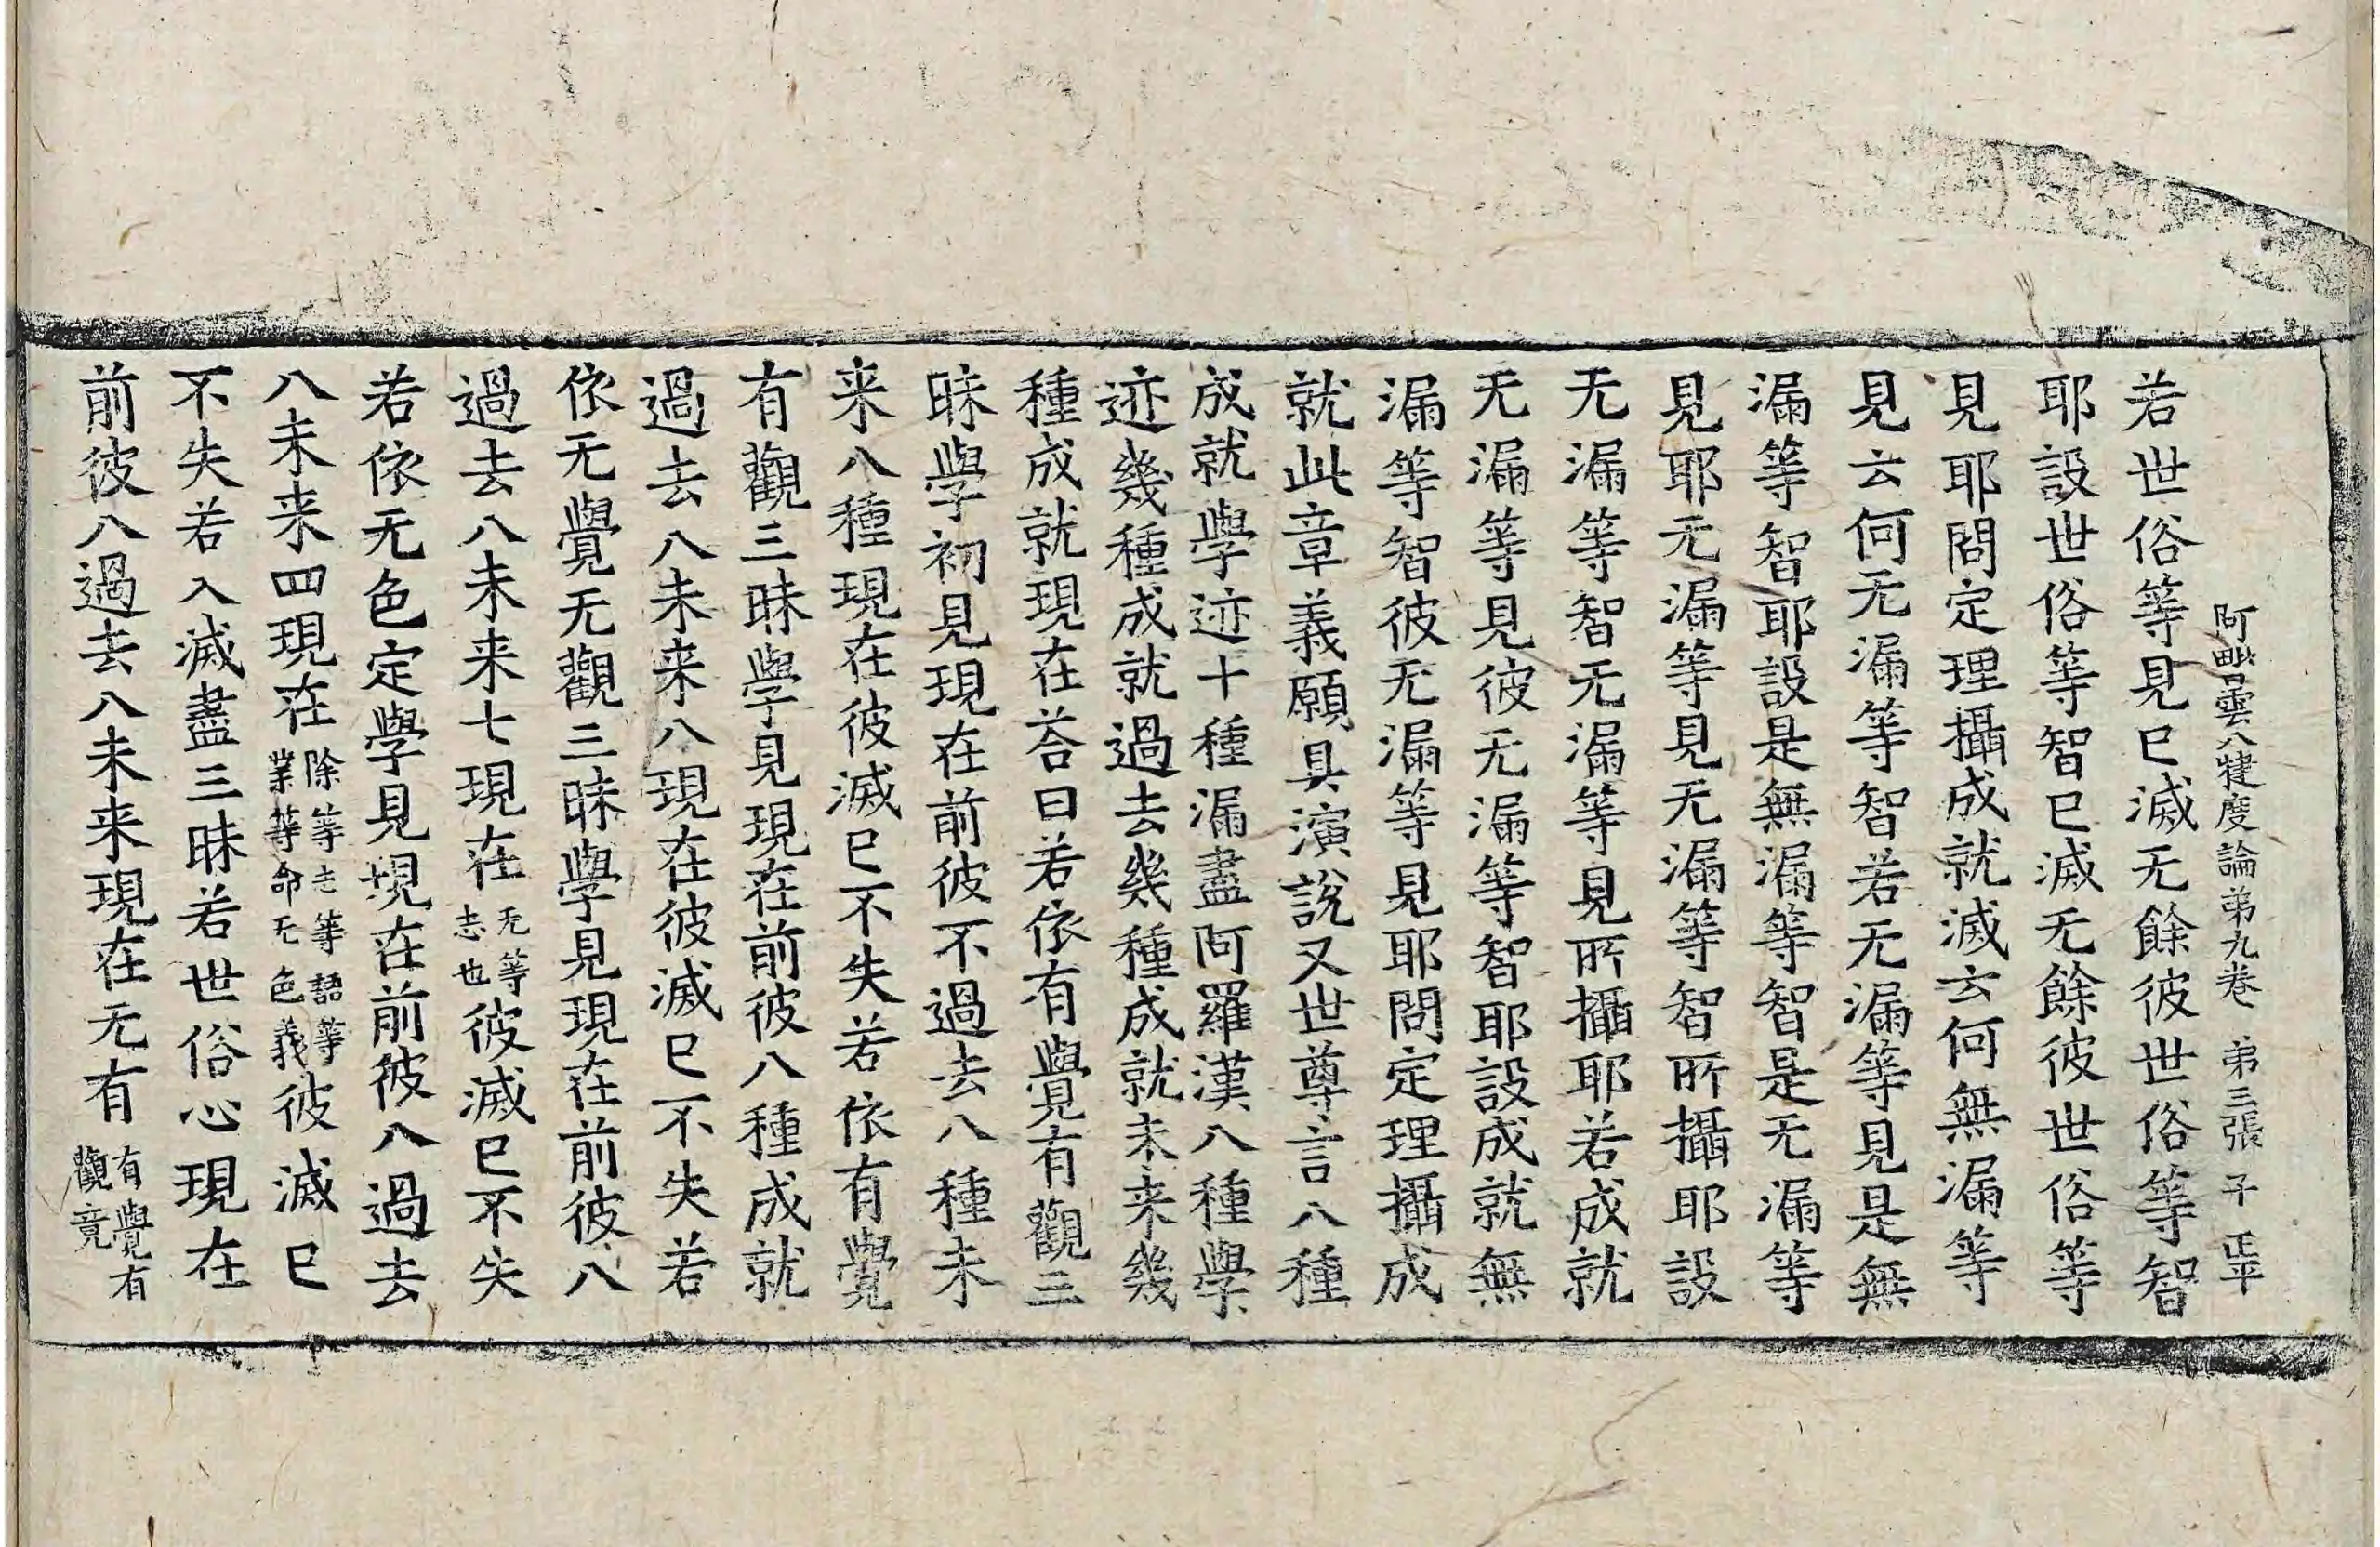 阿毗曇八犍度論弟九卷 弟三張 子 正平
若世俗等見已滅无餘彼世俗等智
耶設世俗等智已滅无餘彼世俗等
見耶問定理攝成就滅云何無漏等
見云何无漏等智若无漏等見是無
漏等智耶設是無漏等智是无漏等
見耶无漏等見无漏等智所攝耶設
无漏等智无漏等見所攝耶若成就
无漏等見彼无漏等智耶設成就無
漏等智彼无漏等見耶問定理攝成
就此章義願具演說又世尊言八種
成就學迹十種漏盡阿羅漢八種學
迹幾種成就過去幾種成就未来幾
種成就現在荅曰若依有覺有觀三
昧學初見現在前彼不過去八種未
来八種現在彼滅已不失若依有覺
有觀三昧學見現在前彼八種成就
過去八未来八現在彼滅已不失若
依无覺无觀三昧學見現在前彼八
過去八未来七現在无等志也彼滅已不失
若依无色定學見現在前彼八過去
八未来四現在除等志等語等業等命无色義彼滅已
不失若入滅盡三昧若世俗心現在
前彼八過去八未来現在无有有覺有觀竟